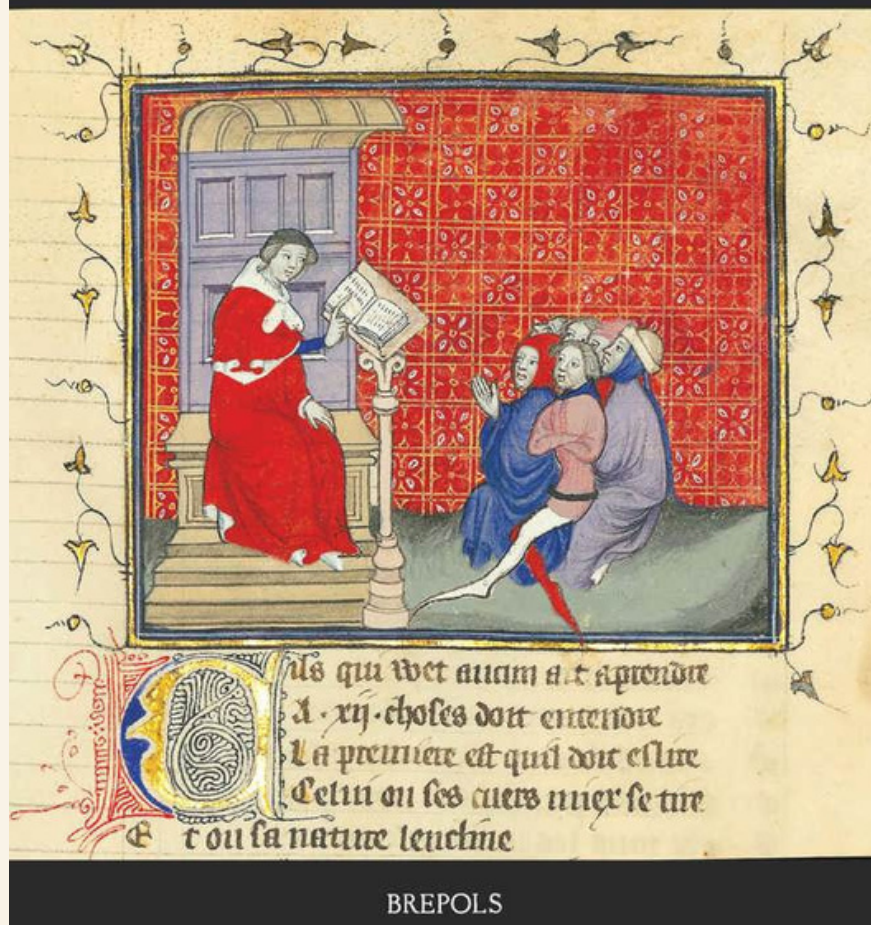 Cils qui vuet aucun art aprendre
A .xij. choses doit entendre
La premiere est quil doit eslire
Celui ou ses cuers miex se tire
Et ou sa nature lencline
BREPOLS